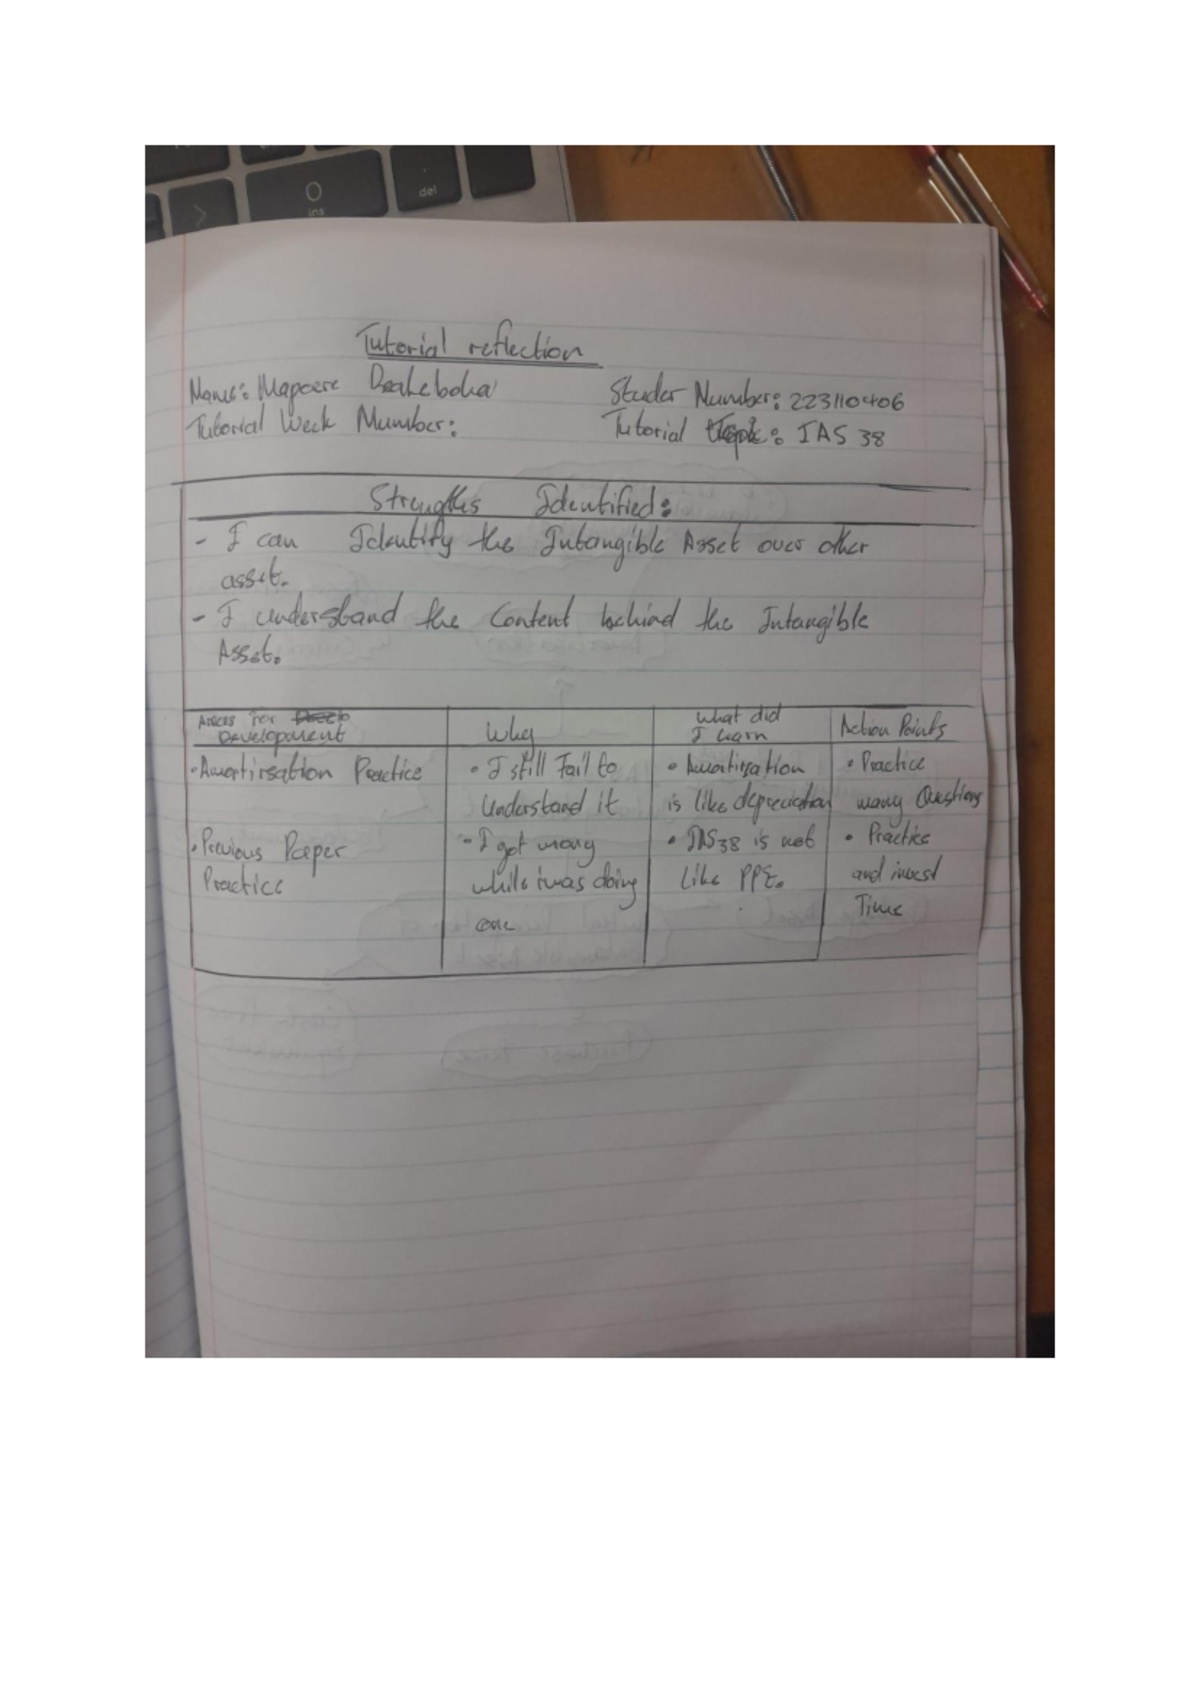 del
ins
Tutorial reflection
Name: Mapoere Student Number: 223110406
Tutorial Week Number: Tutorial Topic: IAS 38
Strengths Identified:
- I can Identify the Intangible Asset over other
asset.
- I understand the Content behind the Intangible
Asset.
Areas for Development
Why
What did I learn
Action Points
• Amortirsation Practice
• I still Fail to
Understand it
• Amortisation
is like depreciation
• Practice
many Questions
• Previous Paper
Practice
- I got wrong
while i was doing
one
• IAS38 is not
Like PPE.
• Practice
and invest
Time